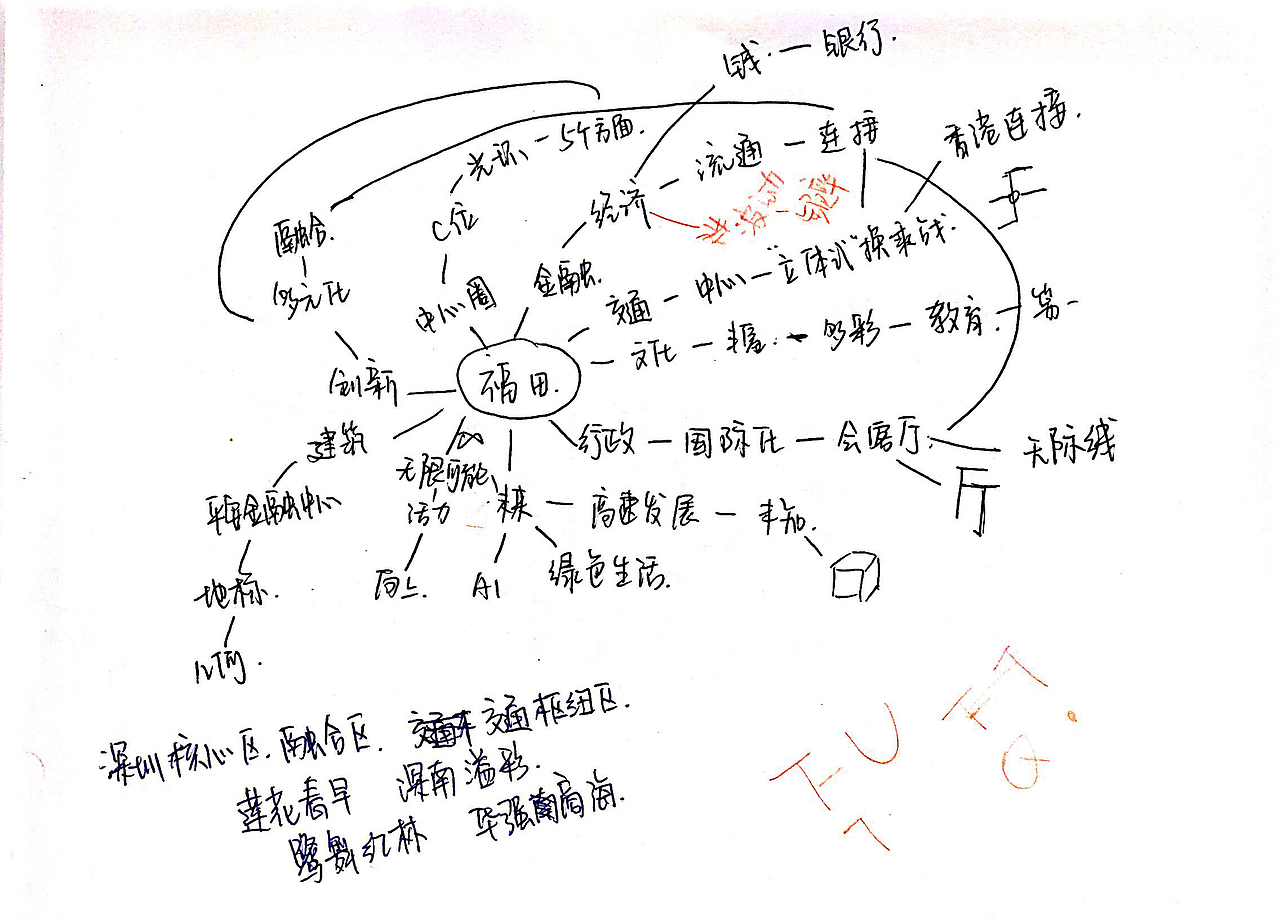 钱 — 银行.
光环 — 5个方面.
经济 — 流通 — 连接
香港连接.
C位
融合.
多元化
中心圈
金融.
交通 — 中心 — “立体式”换乘站.
文化 — 丰富. — 多彩 — 教育. — 第一
创新
福田.
建筑
行政 — 国际化 — 会展厅.
天际线
无限可能
平安金融中心
活力
未来 — 高速发展 — 丰知.
地标.
向上.
AI
绿色生活.
几何.
深圳核心区. 融合区. 交通枢纽区.
莲花春早 深南溢彩.
鹭舞红林 华强商海.
FU
FT